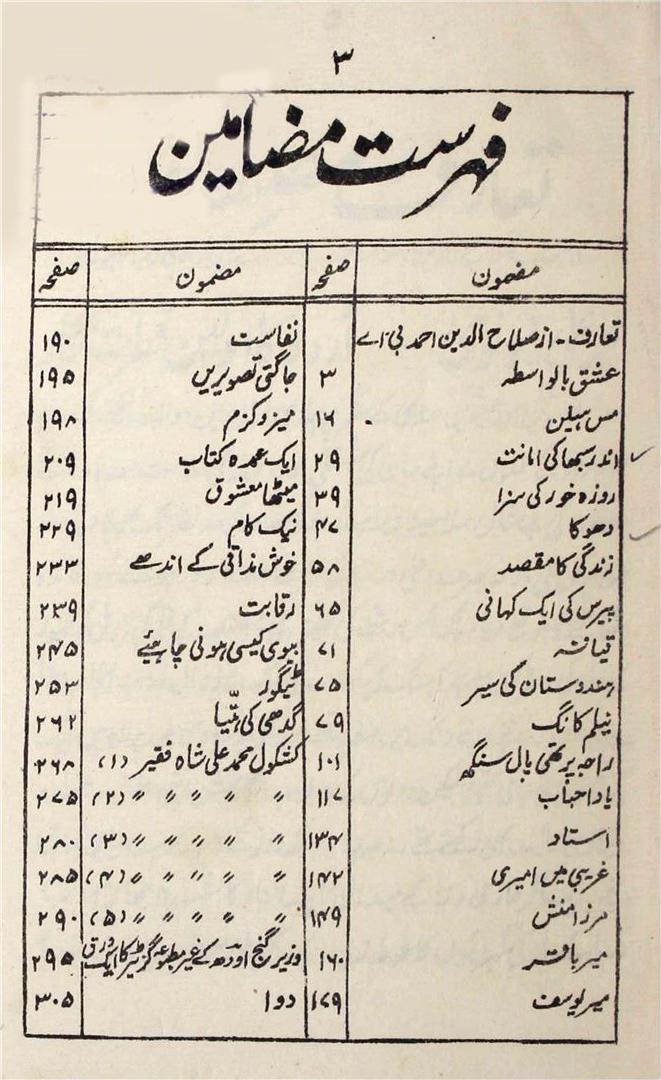 ۳
فہرست مضامین
مضمون صفحہ مضمون صفحہ
تعارف۔ از صلاح الدین احمد بی۔اے
عشق بالواسطہ ۳
مس ہیلن ۱۶
اندر سبھا کی امانت ۲۹
روزہ خور کی سزا ۳۹
دھوکا ۴۷
زندگی کا مقصد ۵۸
پیرس کی ایک کہانی ۶۵
قیافہ ۷۱
ہندوستان کی سیر ۷۵
نیلم کا نگ ۷۹
راجہ پرتھی پال سنگھ ۱۰۱
یاد احباب ۱۱۷
استاد ۱۳۴
غریبی میں امیری ۱۴۲
مرزا منش ۱۴۹
میر باقر ۱۶۰
میر یوسف ۱۷۹
نفاست ۱۹۰
جاگتی تصویریں ۱۹۵
میز و کزم ۱۹۸
ایک عمدہ کتاب ۲۰۹
میٹھا معشوق ۲۱۹
نیک کام ۲۲۹
خوش مذاقی کے اندھے ۲۳۳
رقابت ۲۳۹
بیوی کیسی ہونی چاہیئے ۲۴۵
ٹیگور ۲۵۳
گدھی کی ہتیا ۲۶۲
کشکول محمد علی شاہ فقیر (۱) ۲۶۸
〃 〃 〃 〃 〃 (۲) ۲۷۵
〃 〃 〃 〃 〃 (۳) ۲۸۰
〃 〃 〃 〃 〃 (۴) ۲۸۵
〃 〃 〃 〃 〃 (۵) ۲۹۰
وزیر گنج اودھ کے غیر مطبوعہ گزیٹر کا ایک ورق ۲۹۵
دوا ۳۰۵